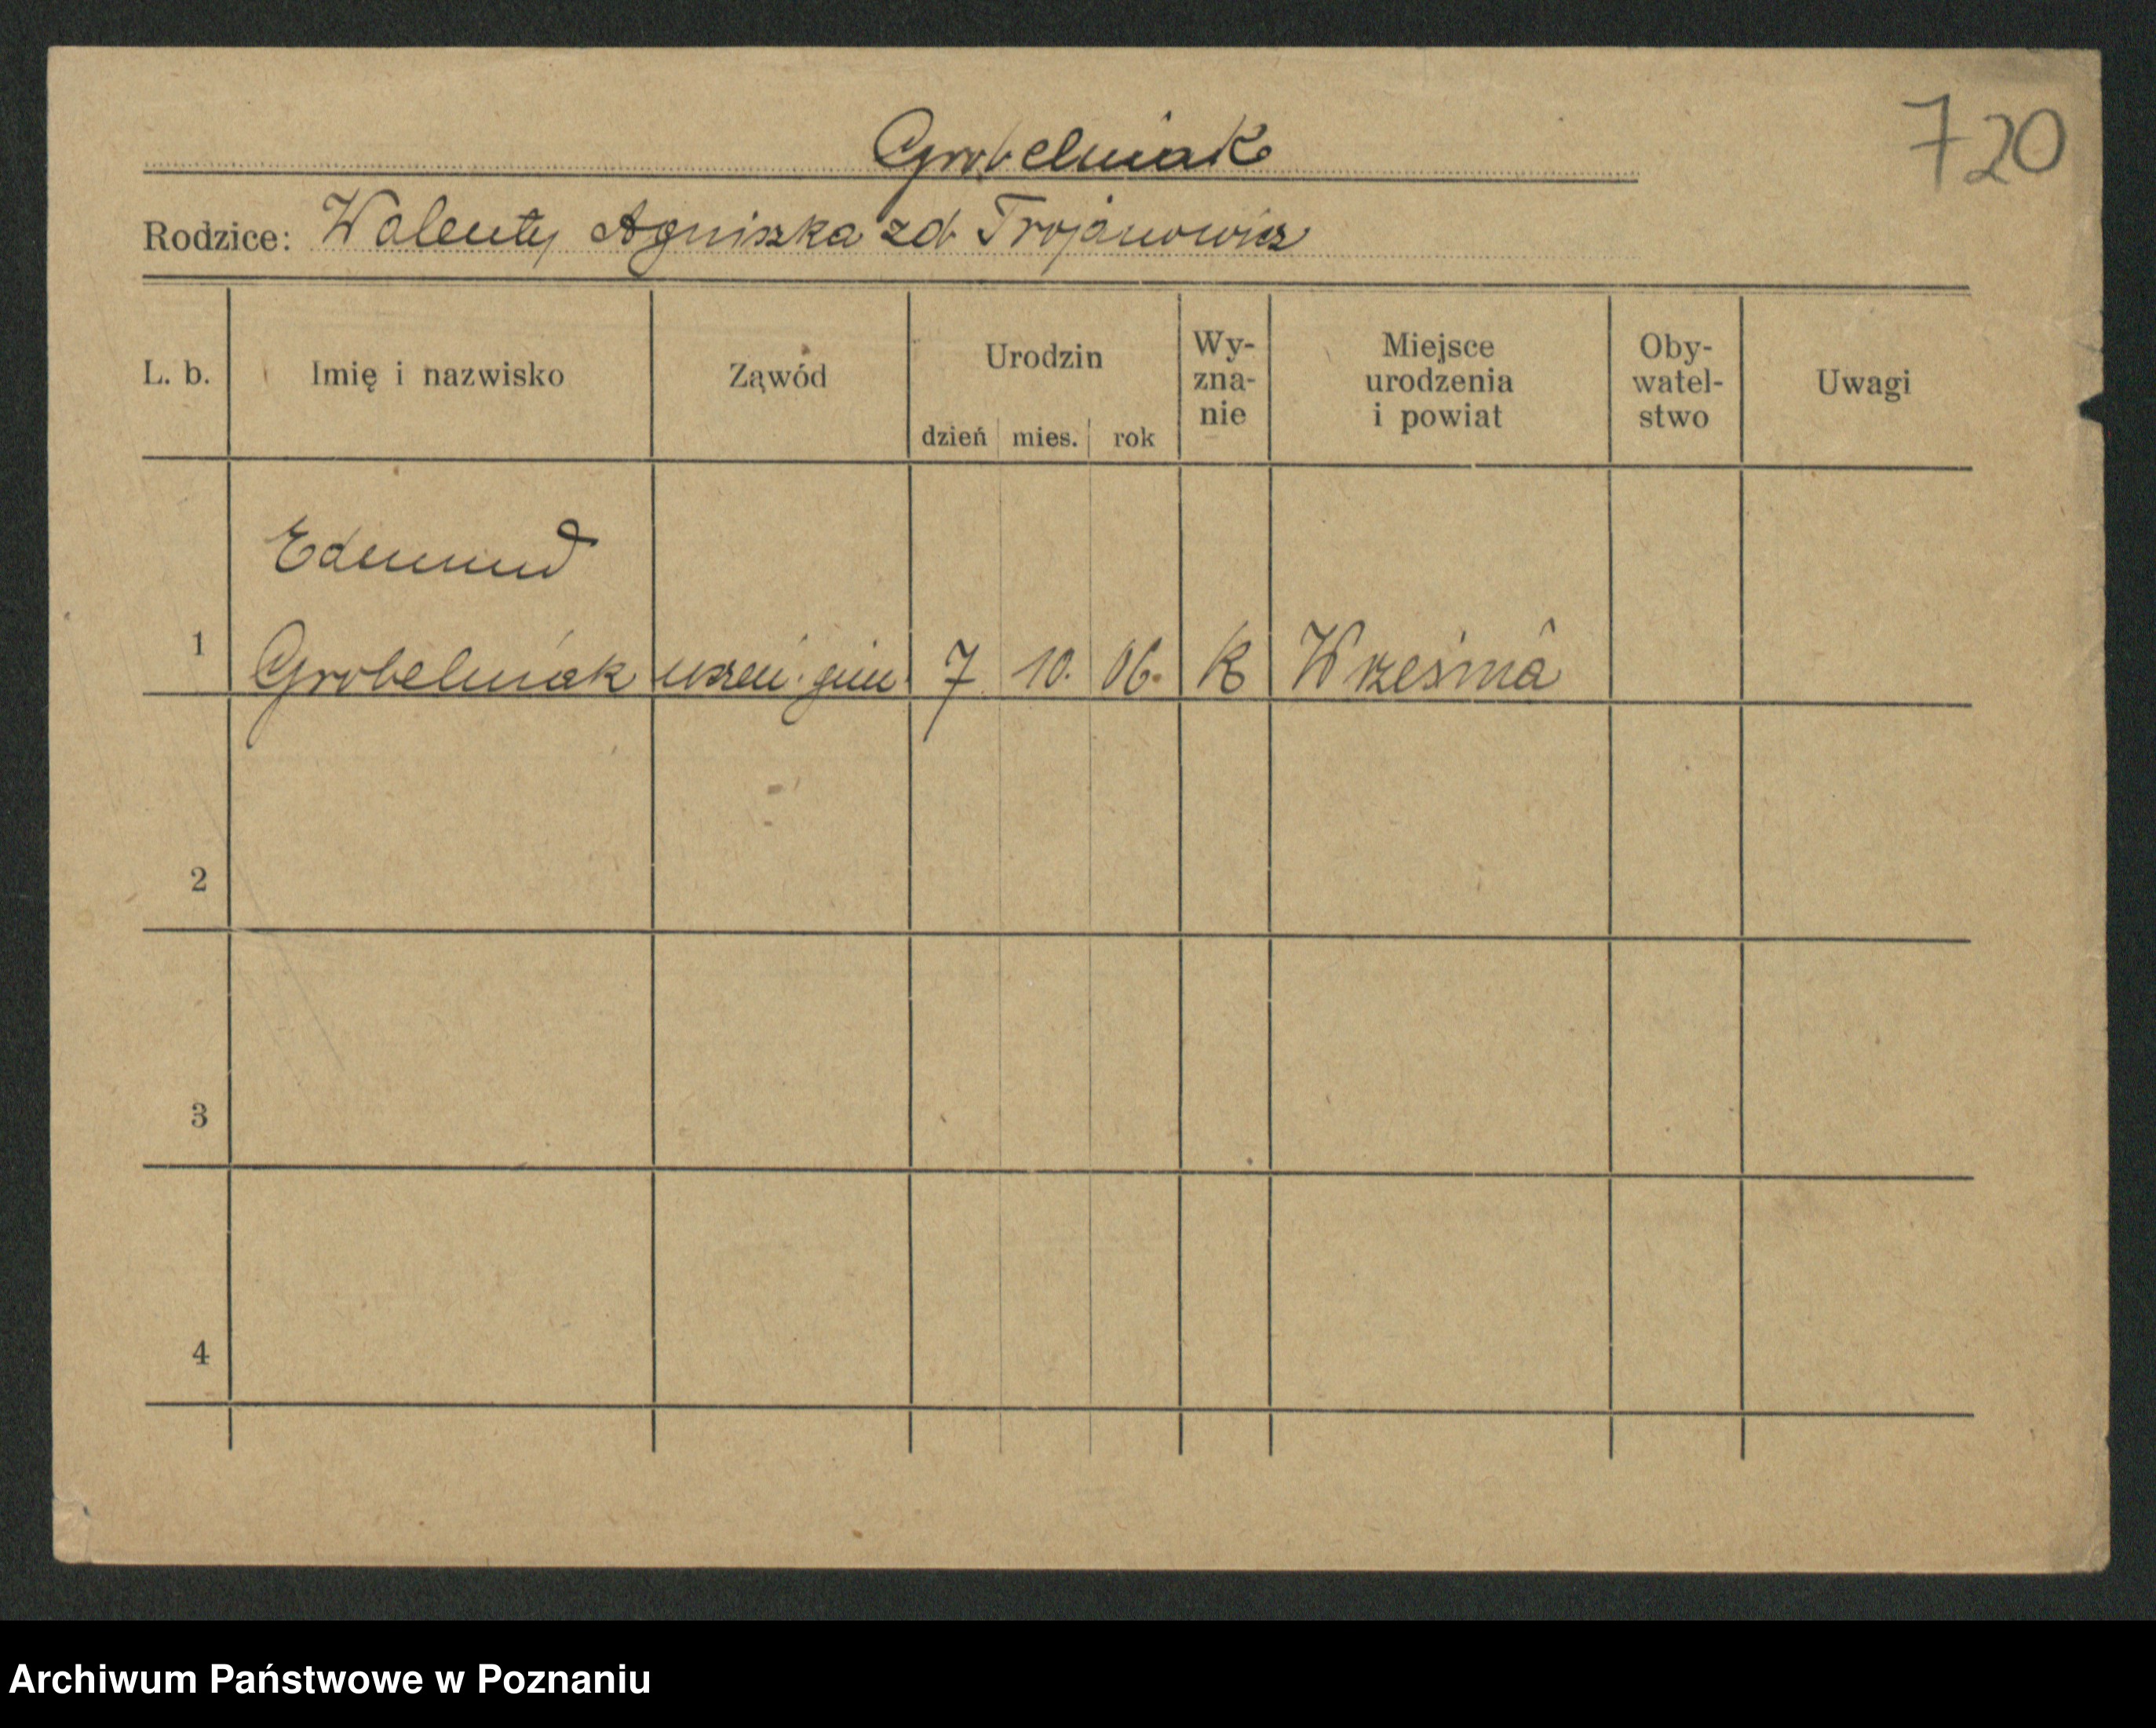 720
Grobelniak
Rodzice: Walenty Agniszka zd Trojanowicz
L. b. Imię i nazwisko Zawód Urodzin dzień mies. rok Wy-
zna-
nie Miejsce
urodzenia
i powiat Oby-
watel-
stwo Uwagi
Edmund
1 Grobelniak uczeń gim 7 10. 06. K Września
2
3
4
Archiwum Państwowe w Poznaniu